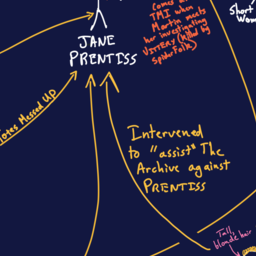 Comes to
TMI when
Martin meets
her investigating
VITTERY (killed by
spider folk)
Short
Wom
JANE
PRENTISS
otes Messed Up
Intervened
to "assist" The
Archive against
PRENTISS
Tall,
blonde hair